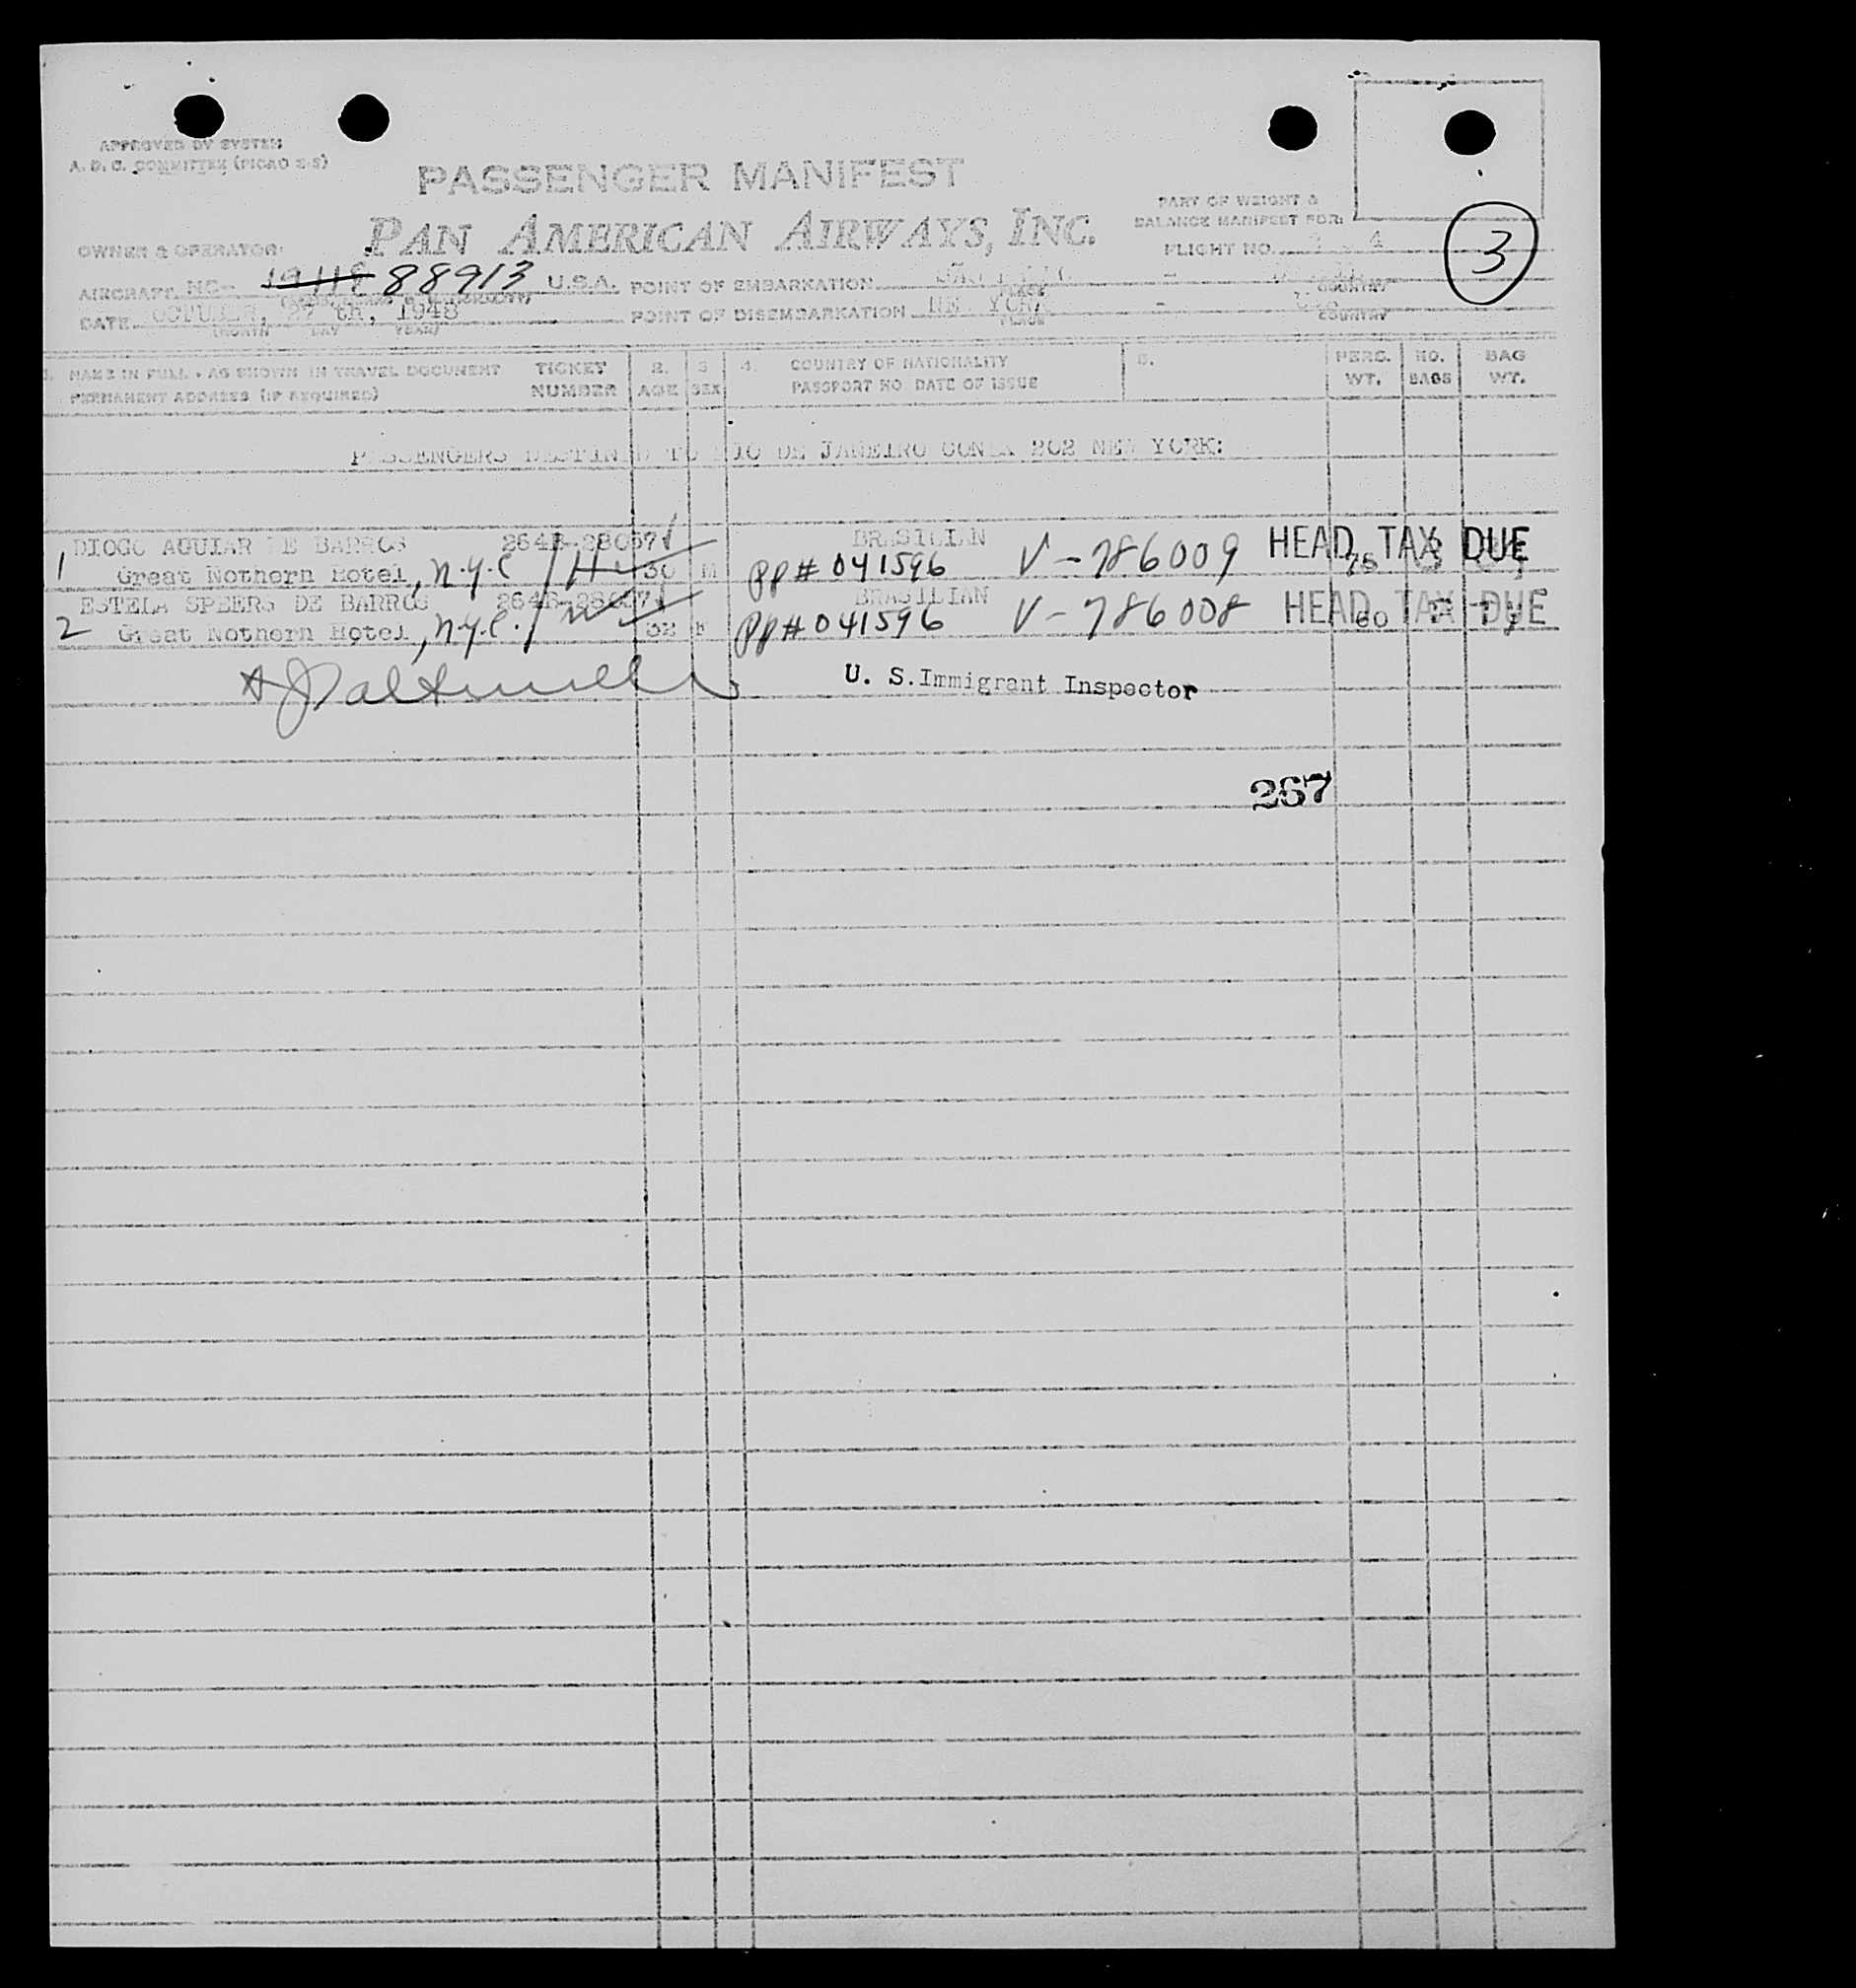 APPROVED BY SYSTEM
A. D. C. COMMITTEE (PICAO 2-S)
PASSENGER MANIFEST
PART OF WEIGHT &
BALANCE MANIFEST FOR:
OWNER & OPERATOR:
PAN AMERICAN AIRWAYS, INC.
FLIGHT NO.
3
AIRCRAFT NC- 88913 U.S.A.
POINT OF EMBARKATION
PLACE
COUNTRY
DATE OCTOBER, 27 th, 1948
(MONTH DAY YEAR)
POINT OF DISEMBARKATION NEW YORK
PLACE
COUNTRY
1. NAME IN FULL - AS SHOWN IN TRAVEL DOCUMENT
PERMANENT ADDRESS (IF REQUIRED)
TICKET NUMBER
2. AGE
3 SEX
4. COUNTRY OF NATIONALITY
PASSPORT NO. DATE OF ISSUE
5.
PERS. WT.
NO. BAGS
BAG WT.
PASSENGERS DESTINED TO RIO DE JANEIRO 202 NEW YORK:
1 DIOGO AGUIAR DE BARROS BRASILIAN HEAD TAX DUE
Great Nothern Hotel, n.y.c 30 M pp# 041596 V-786009
2 ESTELA SPEERS DE BARROS BRASILIAN HEAD TAX DUE
Great Nothern Hotel, n.y.c. 32 F pp# 041596 V-786008 60
U. S. Immigrant Inspector
267